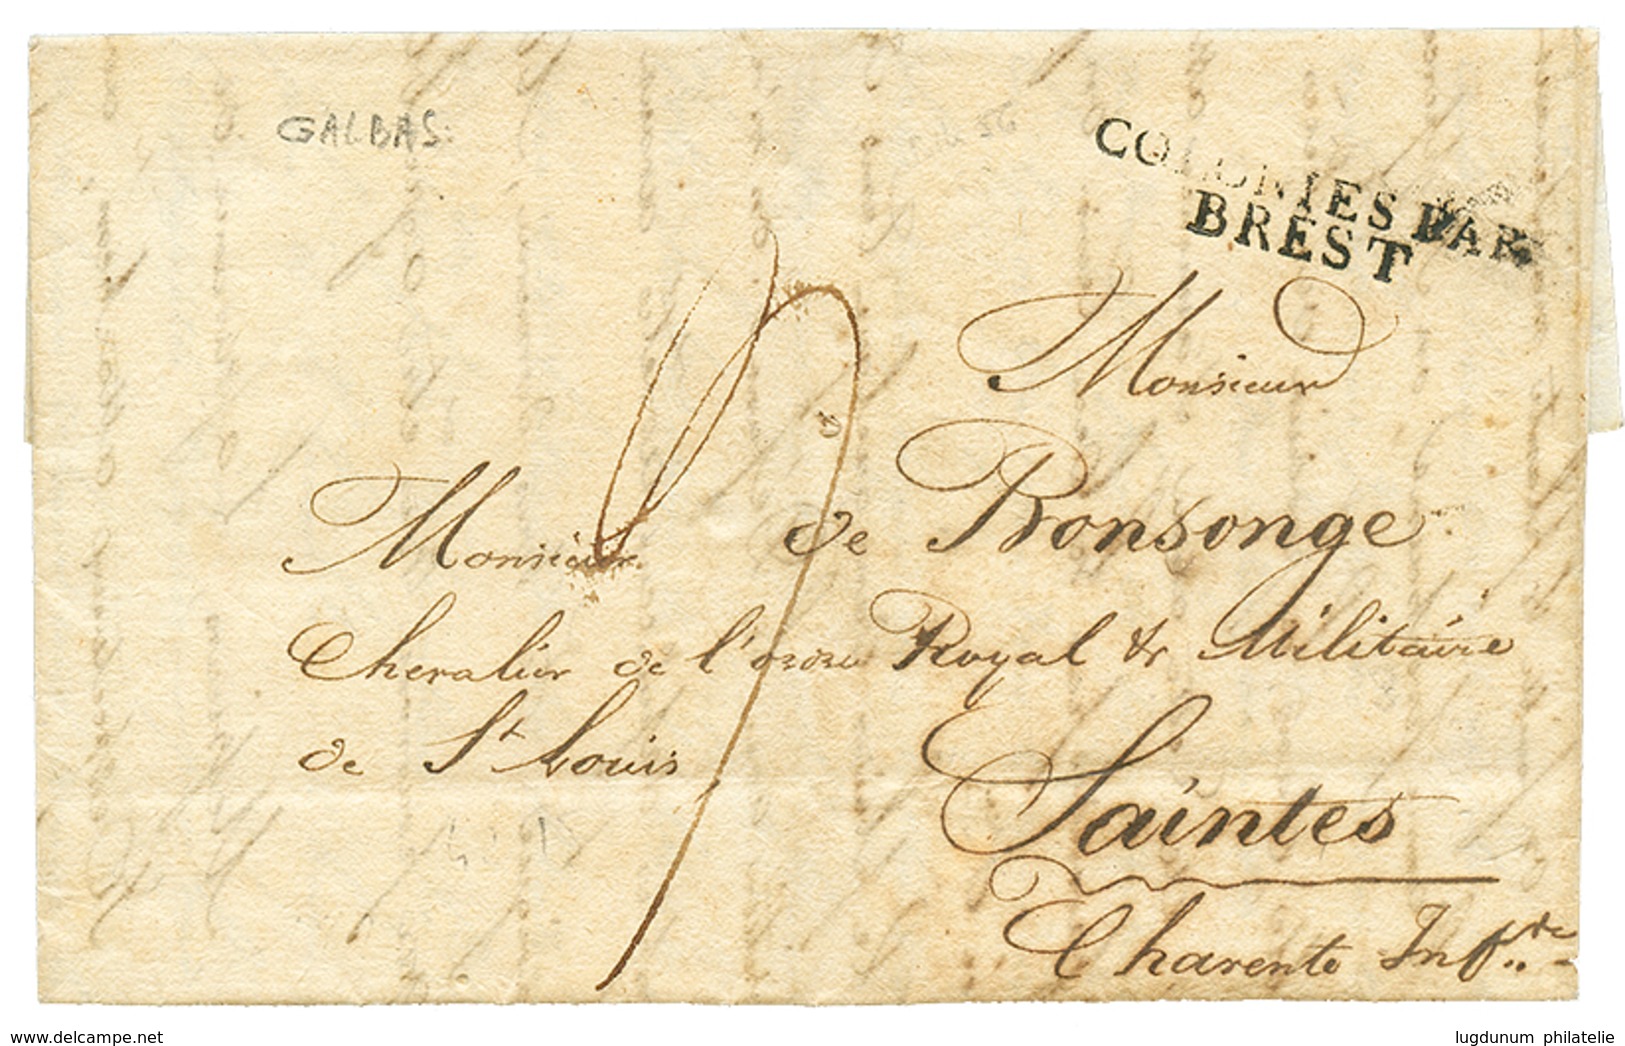 GALBAS
COLONIES PAR
BREST
Monsieur
Monsieur de Bonsonge
Chevalier de l'ordre Royal & Militaire
de St Louis
Saintes
Charente Infre
www.delcampe.net
lugdunum philatelie